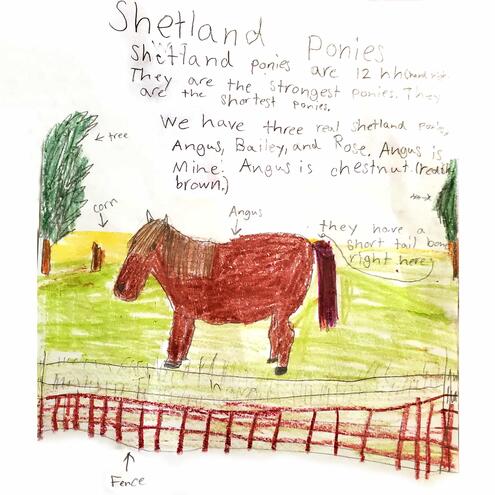 Shetland Ponies
Shetland ponies are 12 hh (hand high.
They are the strongest ponies. They
are the shortest ponies.
We have three real shetland ponies,
Angus, Bailey, and Rose. Angus is
Mine! Angus is chestnut. (redish
brown.)
tree
corn
Angus
they have a
short tail bone
right here
Fence